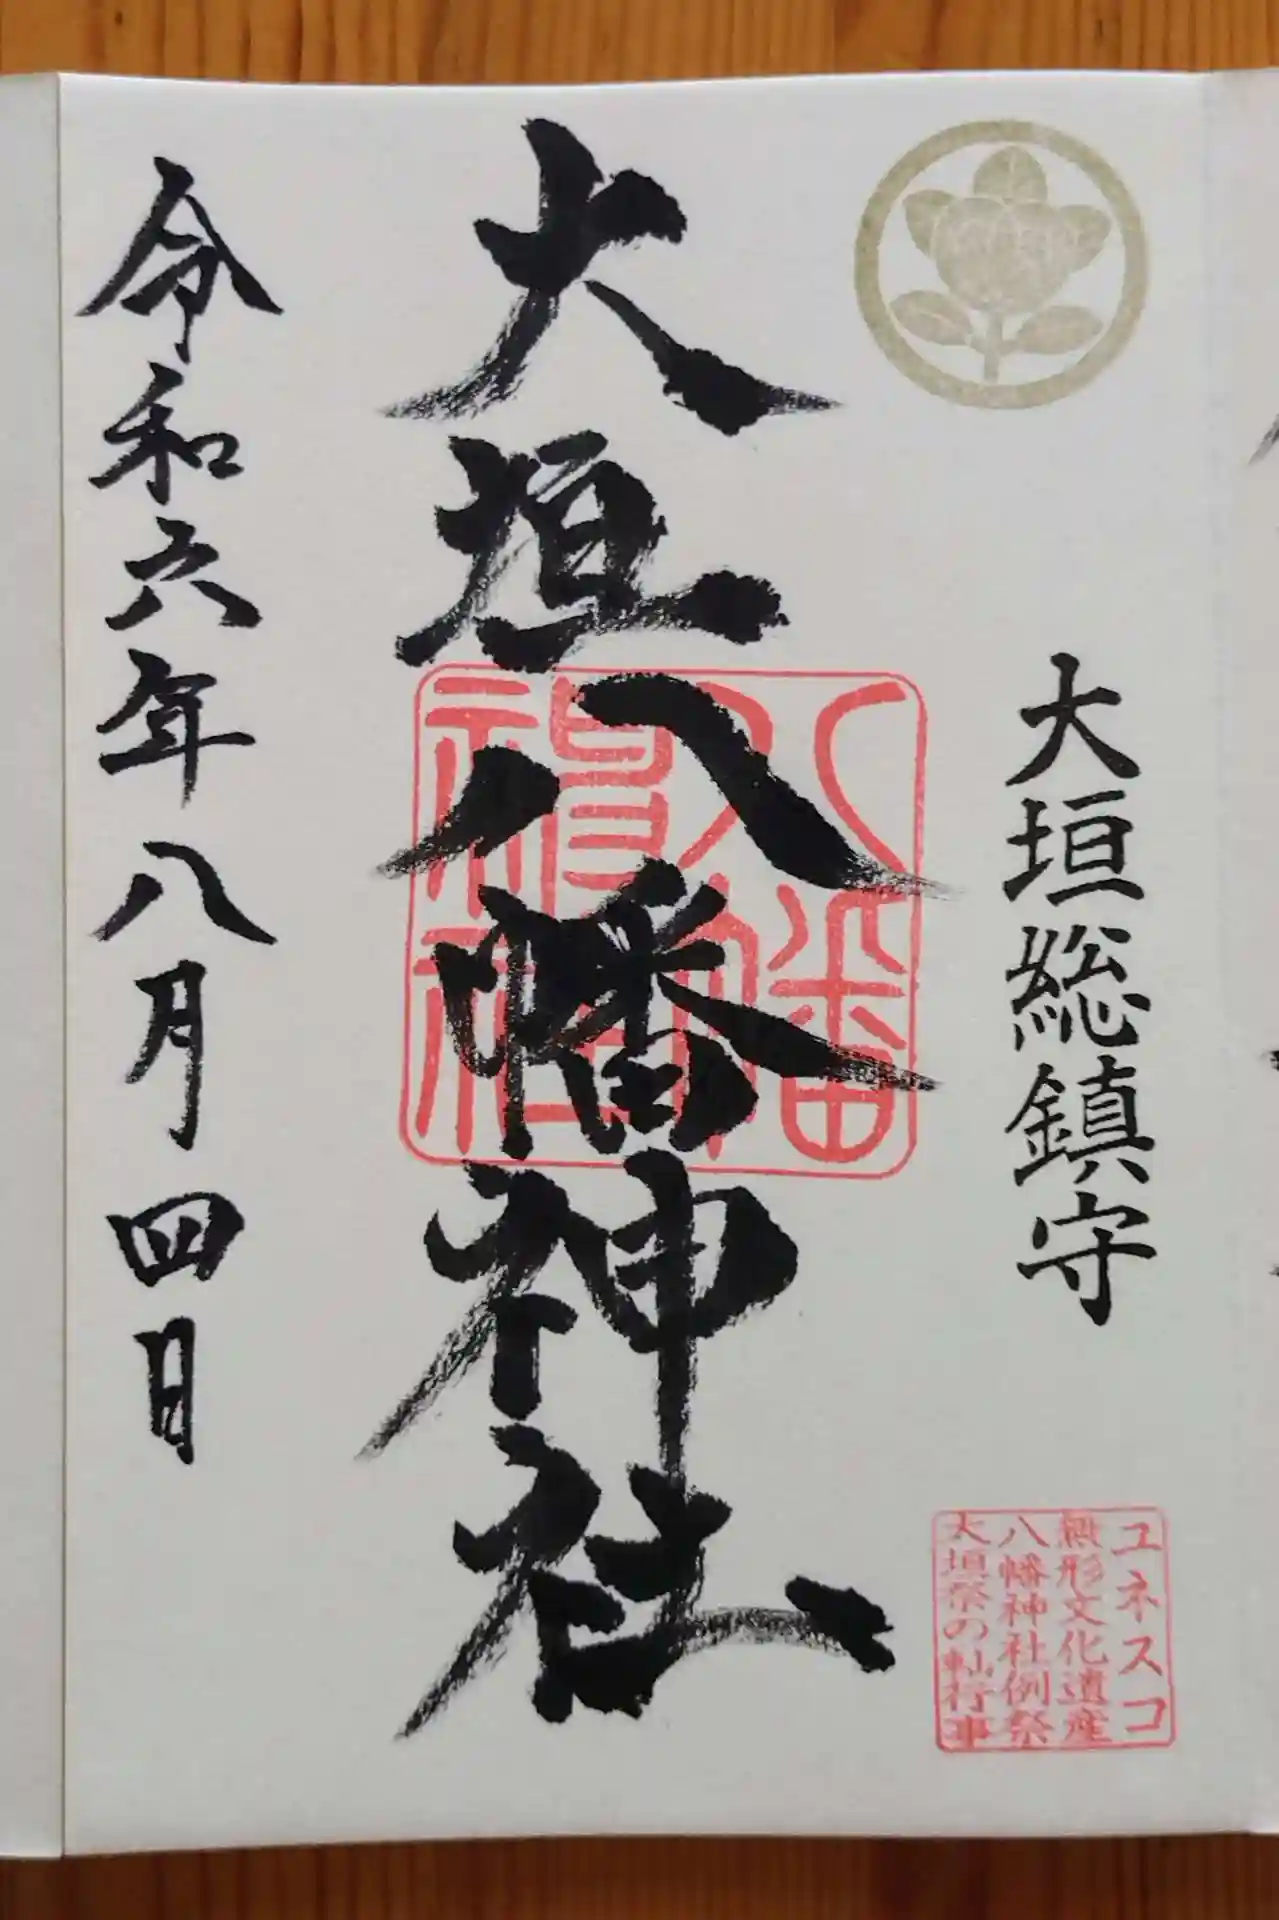 大垣総鎮守
ユネスコ
無形文化遺産
八幡神社例祭
大垣祭の軕行事
大垣八幡神社
八幡
神社
令和六年八月四日